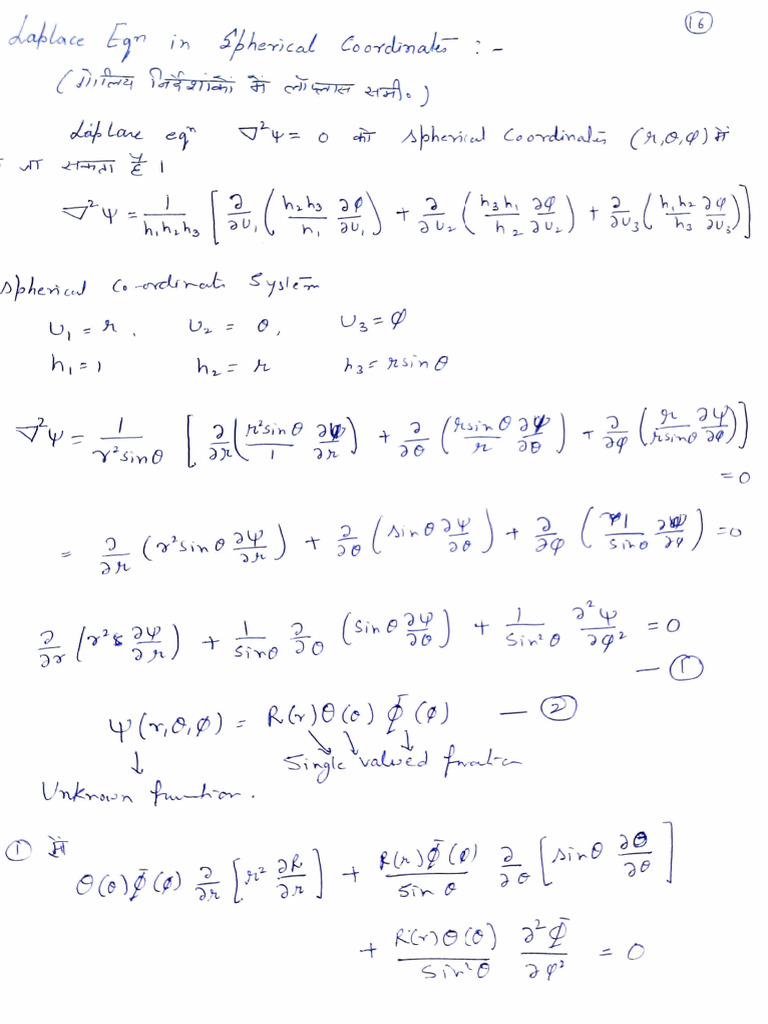 16
Laplace Eqn in Spherical Coordinates :-
(गोलिय निर्देशांकों में लॉप्लास समी०)
Laplace eqⁿ ∇²Ψ = 0 को spherical coordinates (r,θ,φ) में
जा सकता है ।
∇²Ψ = 1/(h₁h₂h₃) [ ∂/∂u₁ ( h₂h₃/h₁ ∂φ/∂u₁ ) + ∂/∂u₂ ( h₃h₁/h₂ ∂φ/∂u₂ ) + ∂/∂u₃ ( h₁h₂/h₃ ∂φ/∂u₃ ) ]
Spherical Co-ordinate System
u₁ = r , u₂ = θ, u₃ = φ
h₁ = 1 h₂ = r h₃ = r sinθ
∇²Ψ = 1/(r² sinθ) [ ∂/∂r ( r² sinθ/1 ∂Ψ/∂r ) + ∂/∂θ ( r sinθ/r ∂Ψ/∂θ ) + ∂/∂φ ( r/(r sinθ) ∂Ψ/∂φ ) ]
= 0
= ∂/∂r ( r² sinθ ∂Ψ/∂r ) + ∂/∂θ ( sinθ ∂Ψ/∂θ ) + ∂/∂φ ( 1/sinθ ∂Ψ/∂φ ) = 0
∂/∂r ( r² ∂Ψ/∂r ) + 1/sinθ ∂/∂θ ( sinθ ∂Ψ/∂θ ) + 1/sin²θ ∂²Ψ/∂φ² = 0
— ①
Ψ(r,θ,φ) = R(r)Θ(θ) Φ(φ) — ②
Single valued function
Unknown function.
① में
Θ(θ)Φ(φ) ∂/∂r [ r² ∂R/∂r ] + R(r)Φ(φ)/sinθ ∂/∂θ [ sinθ ∂Θ/∂θ ]
+ R(r)Θ(θ)/sin²θ ∂²Φ/∂φ² = 0